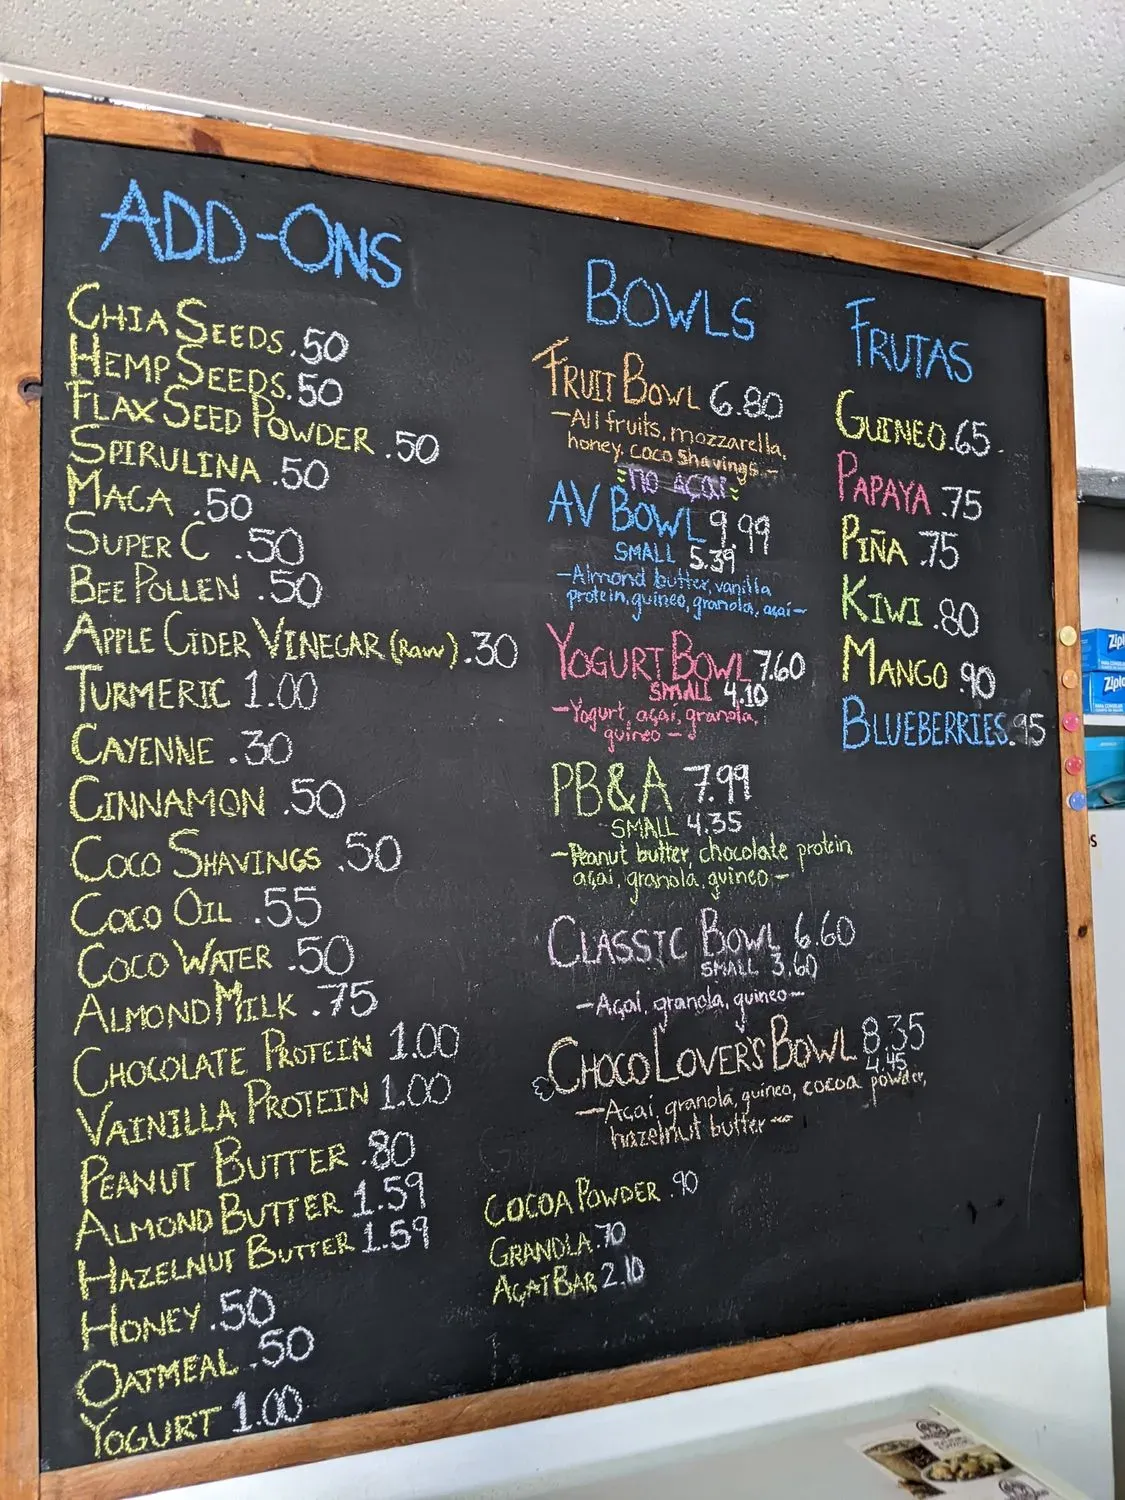 ADD-ONS
CHIA SEEDS .50
HEMP SEEDS .50
FLAX SEED POWDER .50
SPIRULINA .50
MACA .50
SUPER C .50
BEE POLLEN .50
APPLE CIDER VINEGAR (Raw) .30
TURMERIC 1.00
CAYENNE .30
CINNAMON .50
COCO SHAVINGS .50
COCO OIL .55
COCO WATER .50
ALMOND MILK .75
CHOCOLATE PROTEIN 1.00
VAINILLA PROTEIN 1.00
PEANUT BUTTER .80
ALMOND BUTTER 1.59
HAZELNUT BUTTER 1.59
HONEY .50
OATMEAL .50
YOGURT 1.00
COCOA POWDER .90
GRANOLA .70
AÇAI BAR 2.10
BOWLS
FRUIT BOWL 6.80
-All fruits, mozzarella,
honey, coco shavings.-
NO AÇAI
AV BOWL 9.99
SMALL 5.39
-Almond butter, vanilla
protein, guineo, granola, açaí-
YOGURT BOWL 7.60
SMALL 4.10
-Yogurt, açaí, granola,
guineo-
PB&A 7.99
SMALL 4.35
-Peanut butter, chocolate protein
açaí, granola, guineo-
CLASSIC BOWL 6.60
SMALL 3.60
-Açaí, granola, guineo-
CHOCO LOVER'S BOWL 8.35
4.45
-Açaí, granola, guineo, cocoa powder,
hazelnut butter-
FRUTAS
GUINEO .65
PAPAYA .75
PIÑA .75
KIWI .80
MANGO .90
BLUEBERRIES .95
Ziplo
Ziplo